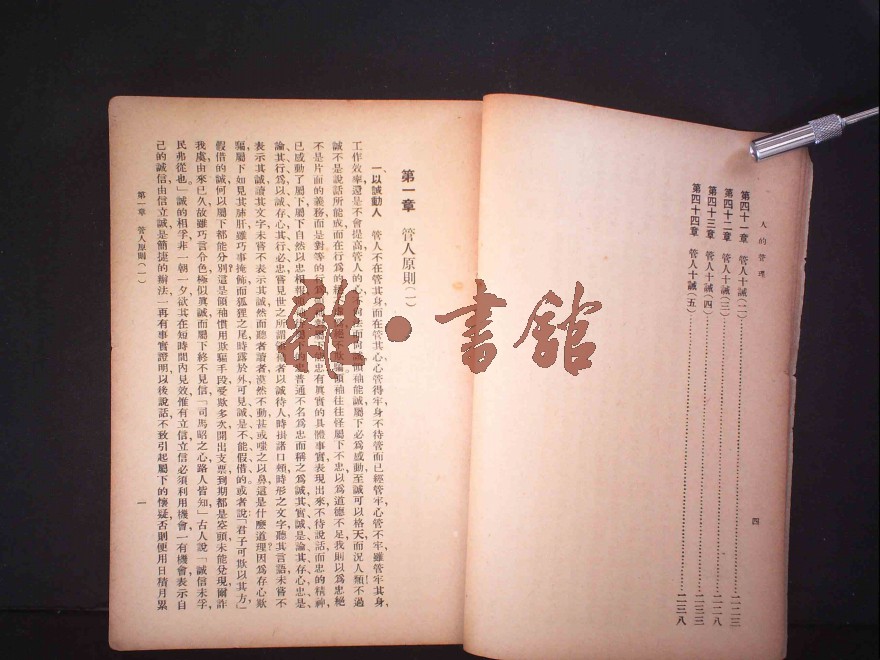 人的管理
四
第四十一章 管人十誡(二)……二二三
第四十二章 管人十誡(三)……二二八
第四十三章 管人十誡(四)……二三三
第四十四章 管人十誡(五)……二三八
第一章 管人原則(一)
一、以誠動人 管人不在管其身而在管其心,心管得牢,身不待管而已經管牢,心管不牢,雖管牢其身,
工作效率還是不會提高,管人的心
誠不是說話所能,或而在行為的
不是片面的義務,而是對等的行
已感動了屬下,屬下自然以忠相
論其行,為以誠存心,其行必忠,嘗見世之所謂
表示其誠,讀其文字,未嘗不表示其誠,然而聽者讀者,漠然不動,甚或嗤之以鼻,這是什麼道理?因為存心欺
騙屬下,如見其肺肝,雖巧事掩飾,而狐狸之尾,時露於外,可見誠是不能假借的。或者說「君子可欺以其方」
假借的誠,何以屬下都能分別?這是領袖慣用欺騙手段,受欺多次,開出支票,到期都是空頭,未能兌現,爾詐
我虞,由來已久,故雖巧言令色,極似眞誠,而屬下終不見信,「司馬昭之心,路人皆知」古人說「誠信未孚,
民弗從也。」誠的相孚,非一朝一夕,欲其在短時間內見效,惟有立信,立信必須利用機會,一有機會,表示自
己的誠信,由信立誠,是簡捷的辦法,一再有事實證明,以後說話,不致引起屬下的懷疑,否則便用日積月累
第一章 管人原則(一)
一
雜·書館